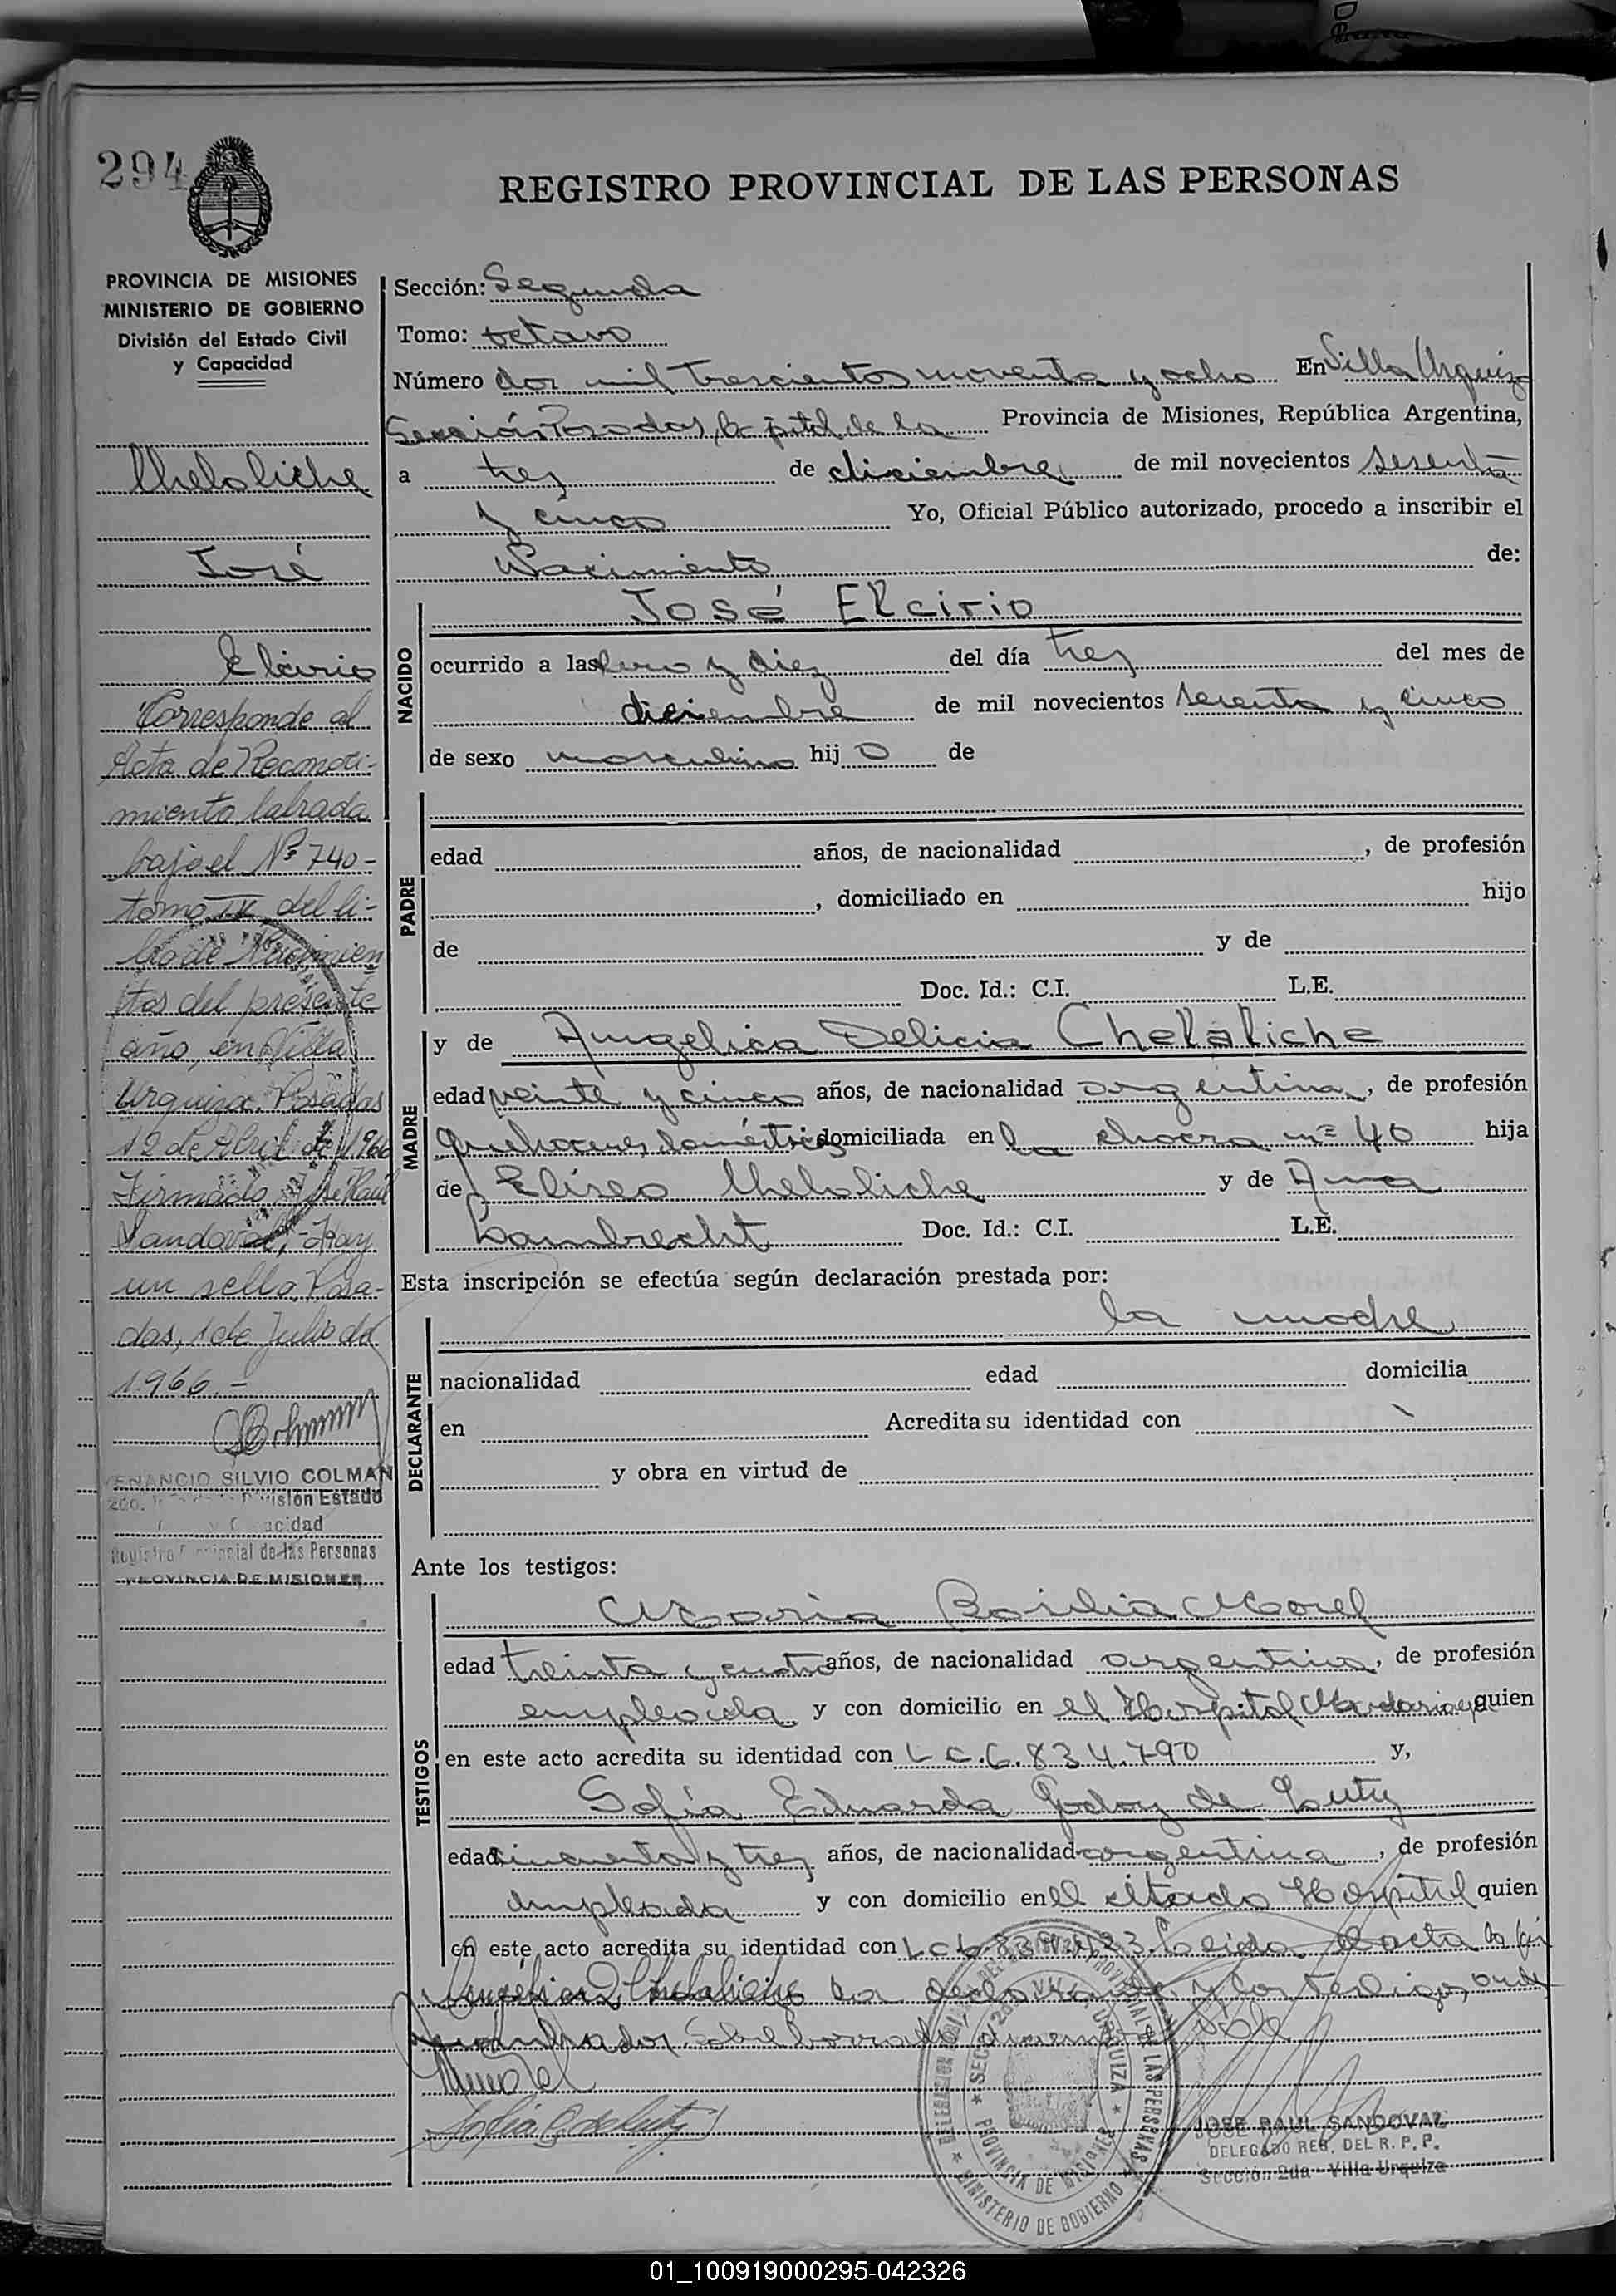 294
REGISTRO PROVINCIAL DE LAS PERSONAS
PROVINCIA DE MISIONES
MINISTERIO DE GOBIERNO
División del Estado Civil
y Capacidad
Chelaliche
José
Elcirio
Corresponde al
Acta de Reconoci-
miento labrada
bajo el Nº 740-
tomo IX del li-
bro de Nacimien
tos del presente
año, en Villa
Urquiza. Posadas
12 de Abril de 1966
Firmado José Raúl
Sandoval, - Hay
un sello, Posa-
das, 1 de Julio de
1966.-
VENANCIO SILVIO COLMAN
División Estado
Registro Provincial de las Personas
PROVINCIA DE MISIONES
Sección: Segunda
Tomo: octavo
Número dos mil trescientos noventa y ocho En Villa Urquiza
Sección Posadas, Capital de la Provincia de Misiones, República Argentina,
a tres de diciembre de mil novecientos sesenta
y cinco Yo, Oficial Público autorizado, procedo a inscribir el
Nacimiento de:
NACIDO
José Elcirio
ocurrido a las cero y diez del día tres del mes de
diciembre de mil novecientos sesenta y cinco
de sexo masculino hijo de
PADRE
edad años, de nacionalidad , de profesión
, domiciliado en hijo
de y de
Doc. Id.: C.I. L.E.
MADRE
y de Angelica Delicia Chelaliche
edad veinte y cinco años, de nacionalidad argentina, de profesión
quehaceres domésticos domiciliada en la chacra nº 40 hija
de Eliseo Chelaliche y de Ana
Lambrecht Doc. Id.: C.I. L.E.
Esta inscripción se efectúa según declaración prestada por:
DECLARANTE
la madre
nacionalidad edad domicilia
en Acredita su identidad con
y obra en virtud de
Ante los testigos:
TESTIGOS
Maria Basilia Morel
edad treinta y cuatro años, de nacionalidad argentina, de profesión
empleada y con domicilio en el Hospital Madariaga quien
en este acto acredita su identidad con L C. 6.834.790 y,
Sofía Eduarda Godoy de Luty
edad cincuenta y tres años, de nacionalidad argentina, de profesión
empleada y con domicilio en el citado Hospital quien
en este acto acredita su identidad con L C Leida el acta la
la declarante y los testigos
JOSE RAUL SANDOVAL
DELEGADO REG. DEL R. P. P.
Sección 2da - Villa Urquiza
MINISTERIO DE GOBIERNO
PROVINCIA DE MISIONES
01_100919000295-042326